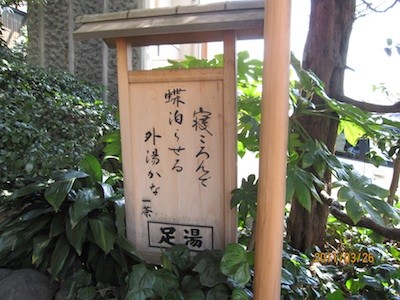 寝ころんで
蝶泊らせる
外湯かな
一茶
足湯
2021/03/26